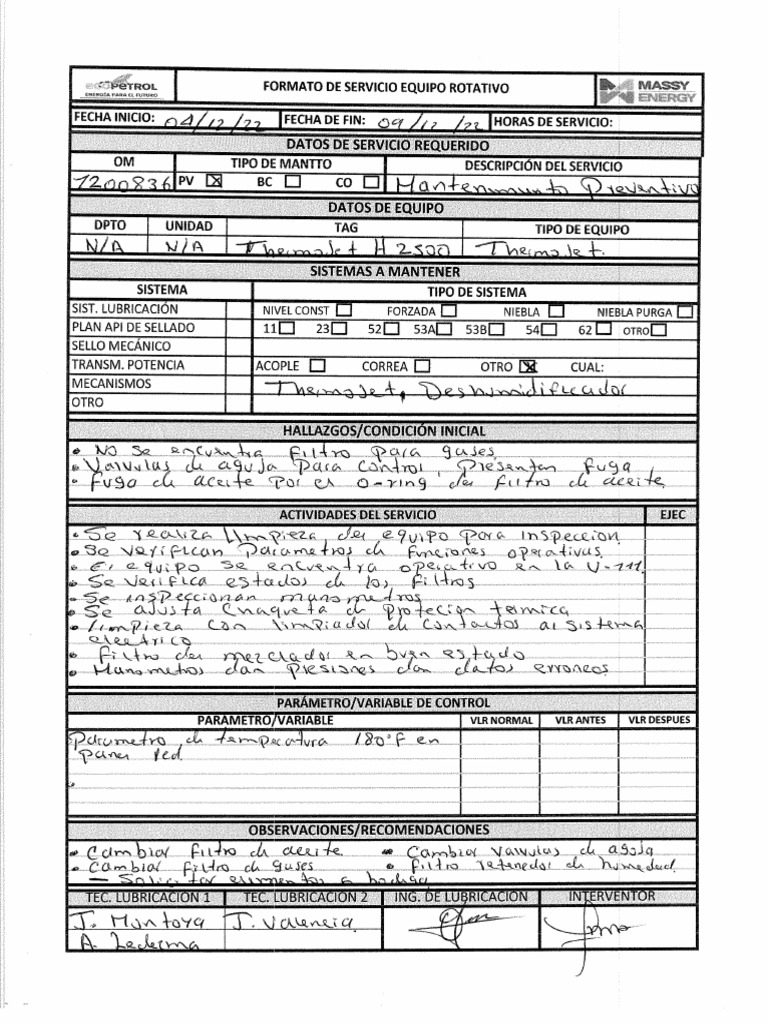 ecopetrol
ENERGÍA PARA EL FUTURO
FORMATO DE SERVICIO EQUIPO ROTATIVO
MASSY
ENERGY
FECHA INICIO: 04/12/22 FECHA DE FIN: 09/12/22 HORAS DE SERVICIO:
DATOS DE SERVICIO REQUERIDO
OM TIPO DE MANTTO DESCRIPCIÓN DEL SERVICIO
7200836 PV ☒ BC ☐ CO ☐ Mantenimiento Preventivo
DATOS DE EQUIPO
DPTO UNIDAD TAG TIPO DE EQUIPO
N/A N/A ThermoJet H2500 ThermoJet.
SISTEMAS A MANTENER
SISTEMA TIPO DE SISTEMA
SIST. LUBRICACIÓN NIVEL CONST ☐ FORZADA ☐ NIEBLA ☐ NIEBLA PURGA ☐
PLAN API DE SELLADO 11 ☐ 23 ☐ 52 ☐ 53A ☐ 53B ☐ 54 ☐ 62 ☐ OTRO ☐
SELLO MECÁNICO
TRANSM. POTENCIA ACOPLE ☐ CORREA ☐ OTRO ☒ CUAL:
MECANISMOS ThermoJet, Deshumidificador
OTRO
HALLAZGOS/CONDICIÓN INICIAL
• No se encuentra filtro para gases
• Valvulas de aguja para control, presentan fuga
• fuga de aceite por el o-ring del filtro de aceite
ACTIVIDADES DEL SERVICIO EJEC
• Se realiza limpieza del equipo para inspeccion
• Se verifican parametros de funciones operativas.
• El equipo se encuentra operativo en la U-111
• Se verifica estados de los filtros
• Se inspeccionan manometros
• Se ajusta chaqueta de proteción termica
• limpieza con limpiador de contactos al sistema
electrico
• filtro del mezclador en buen estado
• Manometros dan presiones dan datos erroneos
PARÁMETRO/VARIABLE DE CONTROL
PARAMETRO/VARIABLE VLR NORMAL VLR ANTES VLR DESPUES
Parametro de temperatura 180°F en
panel red.
OBSERVACIONES/RECOMENDACIONES
• Cambiar filtro de aceite • Cambiar valvulas de aguja
• Cambiar filtro de gases • filtro retenedor de humedad.
— Solicitar elementos a bodega
TEC. LUBRICACIÓN 1 TEC. LUBRICACIÓN 2 ING. DE LUBRICACIÓN INTERVENTOR
J. Montoya J. Valencia
A. Ledesma